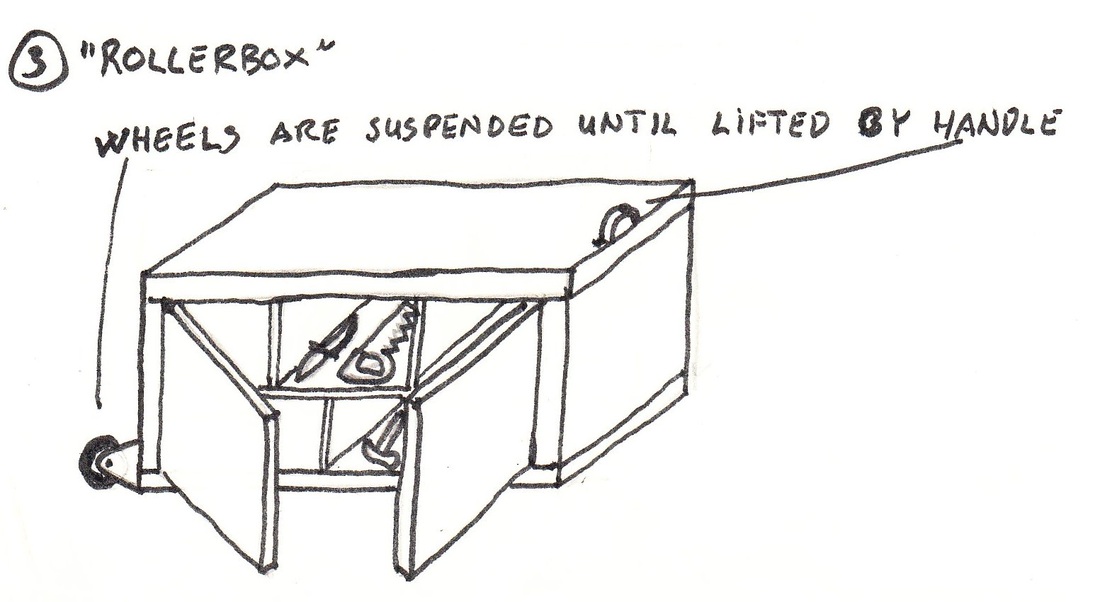 ③ "ROLLERBOX"
WHEELS ARE SUSPENDED UNTIL LIFTED BY HANDLE